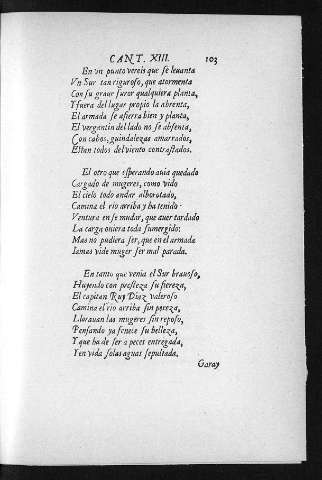 CANT. XIII. 103
En vn punto vereis que se leuanta
Vn Sur tan riguroso, que atormenta
Con su graue furor qualquiera planta,
Y fuera del lugar propio la abrenta,
El armada se afierra bien y planta,
El vergantin del lado no se absenta,
Con cabos, guindalezas amarrados,
Estan todos del viento contrastados.
El otro que esperando auia quedado
Cargado de mugeres, como vido
El cielo todo andar alborotado,
Camina el rio arriba y ha temido:
Ventura en se mudar, que auer tardado
La carga ouiera toda sumergido:
Mas no pudiera ser, que en el armada
Iamas vide muger ser mal parada.
En tanto que venia el Sur brauoso,
Huyendo con presteza su fiereza,
El capitan Ruy Diaz valeroso
Camina el rio arriba sin pereza,
Llorauan las mugeres sin reposo,
Pensando ya fenece su belleza,
Y que ha de ser a peces entregada,
Y en vida so las aguas sepultada.
Garay